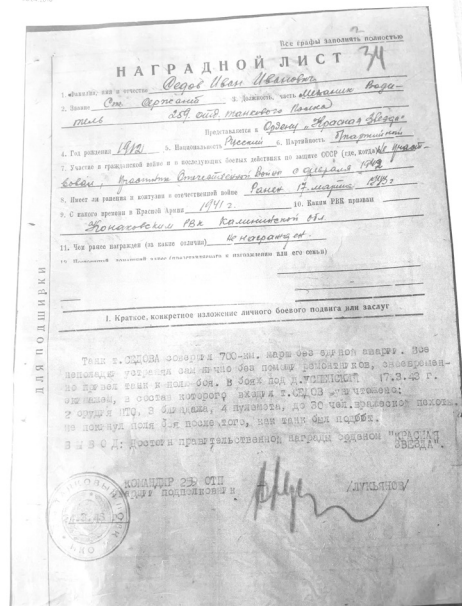 Все графы заполнять полностью
34
НАГРАДНОЙ ЛИСТ
1. Фамилия, имя и отчество Седов Иван Иванович
2. Звание Ст. Сержант 3. Должность, часть Механик Води-
тель 259 отд. танкового полка
Представляется к Ордену "Красная Звезда"
4. Год рождения 1912 5. Национальность Русский 6. Партийность
7. Участие в гражданской войне и в последующих боевых действиях по защите СССР (где, когда) Не участ-
вовал, Отечественной Войне с февраля 1942
8. Имеет ли ранения и контузии в отечественной войне Ранен 17 марта 1943 г
9. С какого времени в Красной Армии 1941 г. 10. Каким РВК призван
Конаковским РВК Калининской обл.
11. Чем ранее награжден (за какие отличия) Не награжден.
I. Краткое, конкретное изложение личного боевого подвига или заслуг
ДЛЯ ПОДШИВКИ
Танк т.СЕДОВА совершил 700-км. марш без единой аварии. Все
неполадки устранял сам лично без помощи ремонтников, своевремен-
но привел танк к полю боя. В боях под д. 17.3.43 г.
экипажем, в состав которого входил т.СЕДОВ уничтожено:
2 орудия ПТО, 3 блиндажа, 4 пулемета, до 30 чел. вражеской пехоты.
Не покинул поля боя после того, как танк был подбит.
ВЫВОД: Достоин правительственной награды орденом "КРАСНАЯ
ЗВЕЗДА".
КОМАНДИР 259 ОТП
гвардии подполковник /ЛУКЬЯНОВ/